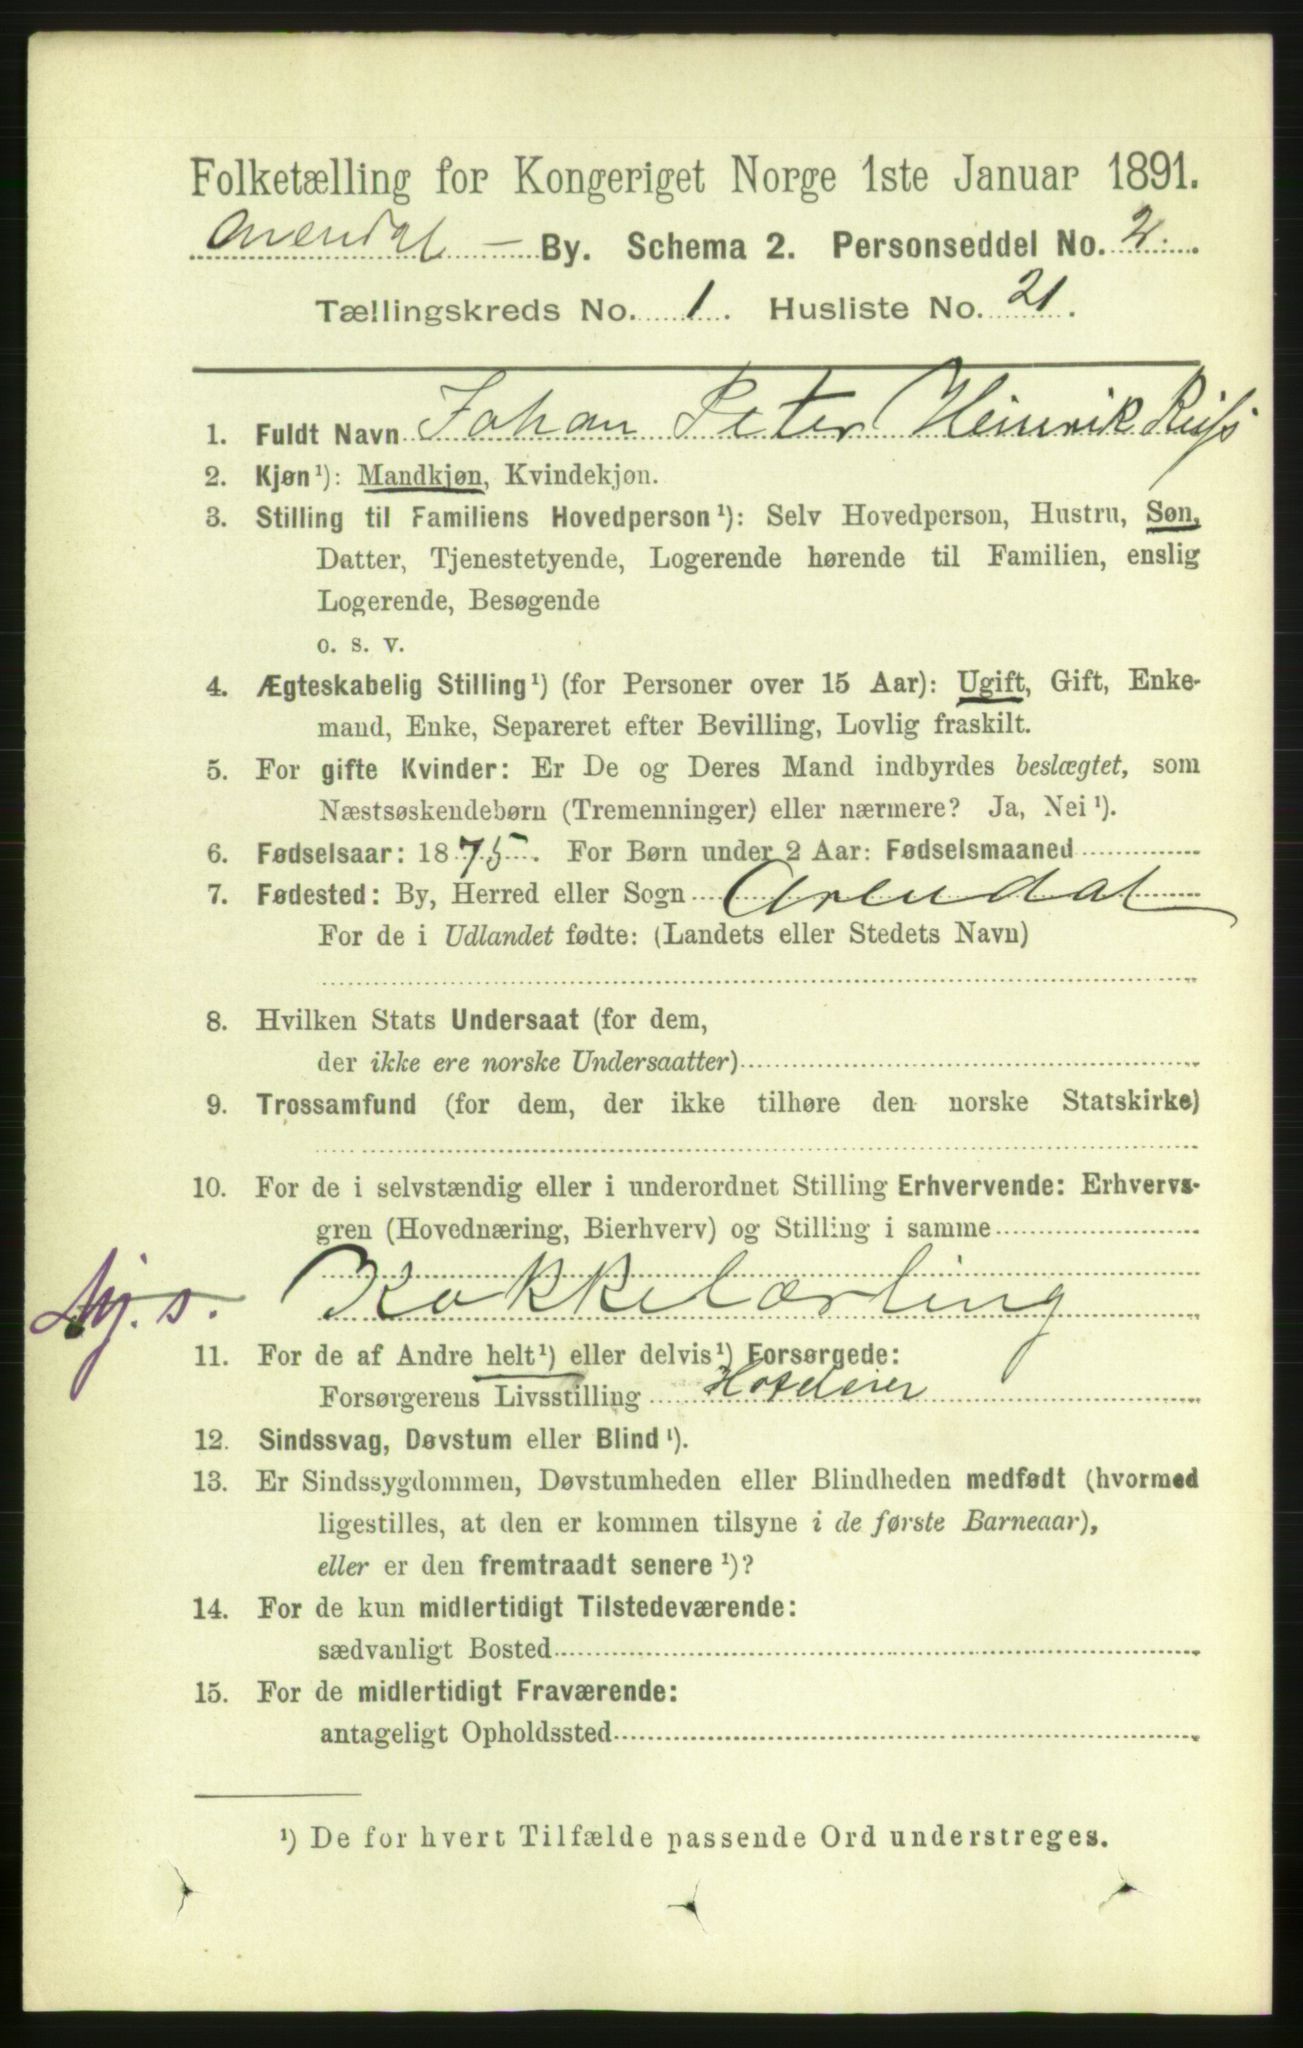 Folketælling for Kongeriget Norge 1ste Januar 1891.
Arendal – By. Schema 2. Personseddel No. 2.
Tællingskreds No. 1. Husliste No. 21.
1. Fuldt Navn Johan Peter Heinrik
2. Kjøn¹): Mandkjøn, Kvindekjøn.
3. Stilling til Familiens Hovedperson¹): Selv Hovedperson, Hustru, Søn,
Datter, Tjenestetyende, Logerende hørende til Familien, enslig
Logerende, Besøgende
o. s. v.
4. Ægteskabelig Stilling¹) (for Personer over 15 Aar): Ugift, Gift, Enke-
mand, Enke, Separeret efter Bevilling, Lovlig fraskilt.
5. For gifte Kvinder: Er De og Deres Mand indbyrdes beslægtet, som
Næstsøskendebørn (Tremenninger) eller nærmere? Ja, Nei¹).
6. Fødselsaar: 1875. For Børn under 2 Aar: Fødselsmaaned
7. Fødested: By, Herred eller Sogn Arendal
For de i Udlandet fødte: (Landets eller Stedets Navn)
8. Hvilken Stats Undersaat (for dem,
der ikke ere norske Undersaatter)
9. Trossamfund (for dem, der ikke tilhøre den norske Statskirke)
10. For de i selvstændig eller i underordnet Stilling Erhvervende: Erhvervs-
gren (Hovednæring, Bierhverv) og Stilling i samme
Kokkelærling
11. For de af Andre helt¹) eller delvis¹) Forsørgede:
Forsørgerens Livsstilling Hoteleier
12. Sindssvag, Døvstum eller Blind¹).
13. Er Sindssygdommen, Døvstumheden eller Blindheden medfødt (hvormed
ligestilles, at den er kommen tilsyne i de første Barneaar),
eller er den fremtraadt senere¹)?
14. For de kun midlertidigt Tilstedeværende:
sædvanligt Bosted
15. For de midlertidigt Fraværende:
antageligt Opholdssted
¹) De for hvert Tilfælde passende Ord understreges.